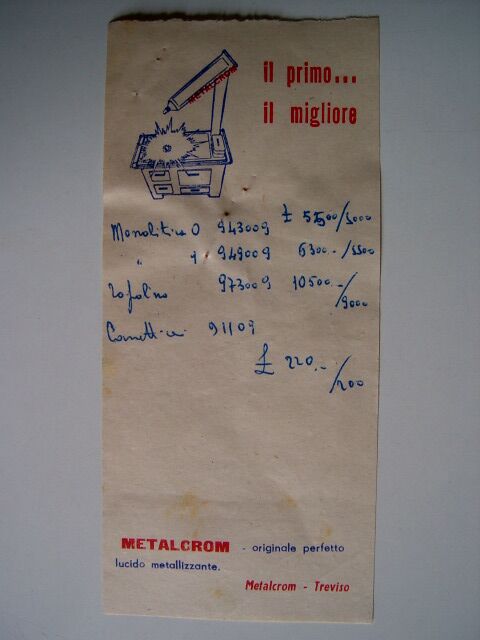 METALCROM
il primo...
il migliore
Monolitico 0 943009 £ 5500/5000
" 1 949009 6300.-/5500
973009 10500.-/9000
91109
£ 220.-/200
METALCROM - originale perfetto
lucido metallizzante.
Metalcrom - Treviso